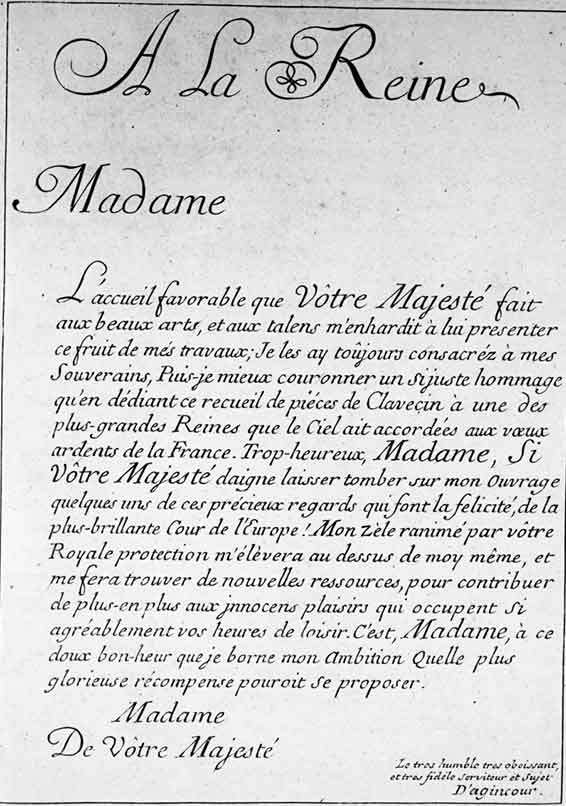 A La Reine
Madame
L'accueil favorable que Vôtre Majesté fait
aux beaux arts, et aux talens m'enhardit à lui présenter
ce fruit de més travaux; Je les ay toûjours consacréz à mes
Souverains, Puis-je mieux couronner un si juste hommage
qu'en dédiant ce recueil de piéces de Clavecin à une des
plus-grandes Reines que le Ciel ait accordées aux vœux
ardents de la France. Trop-heureux, Madame, Si
Vôtre Majesté daigne laisser tomber sur mon Ouvrage
quelques uns de ces précieux regards qui font la felicité, de la
plus-brillante Cour de l'Europe! Mon zèle ranimé par vôtre
Royale protection m'élèvera au dessus de moy même, et
me fera trouver de nouvelles ressources, pour contribuer
de plus-en plus aux jnnocens plaisirs qui occupent si
agréablement vos heures de loisir. C'est, Madame, à ce
doux bon-heur que je borne mon Ambition Quelle plus
glorieuse récompense pouroit se proposer.
Madame
De Vôtre Majesté
Le tres humble tres obeissant,
et tres fidéle Serviteur et Sujet
D'agincour.